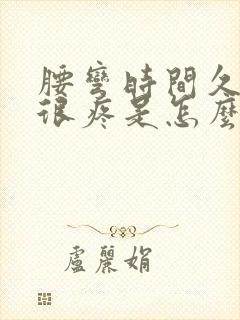 腰彎時間久
很疼是怎麼
盧麗娟